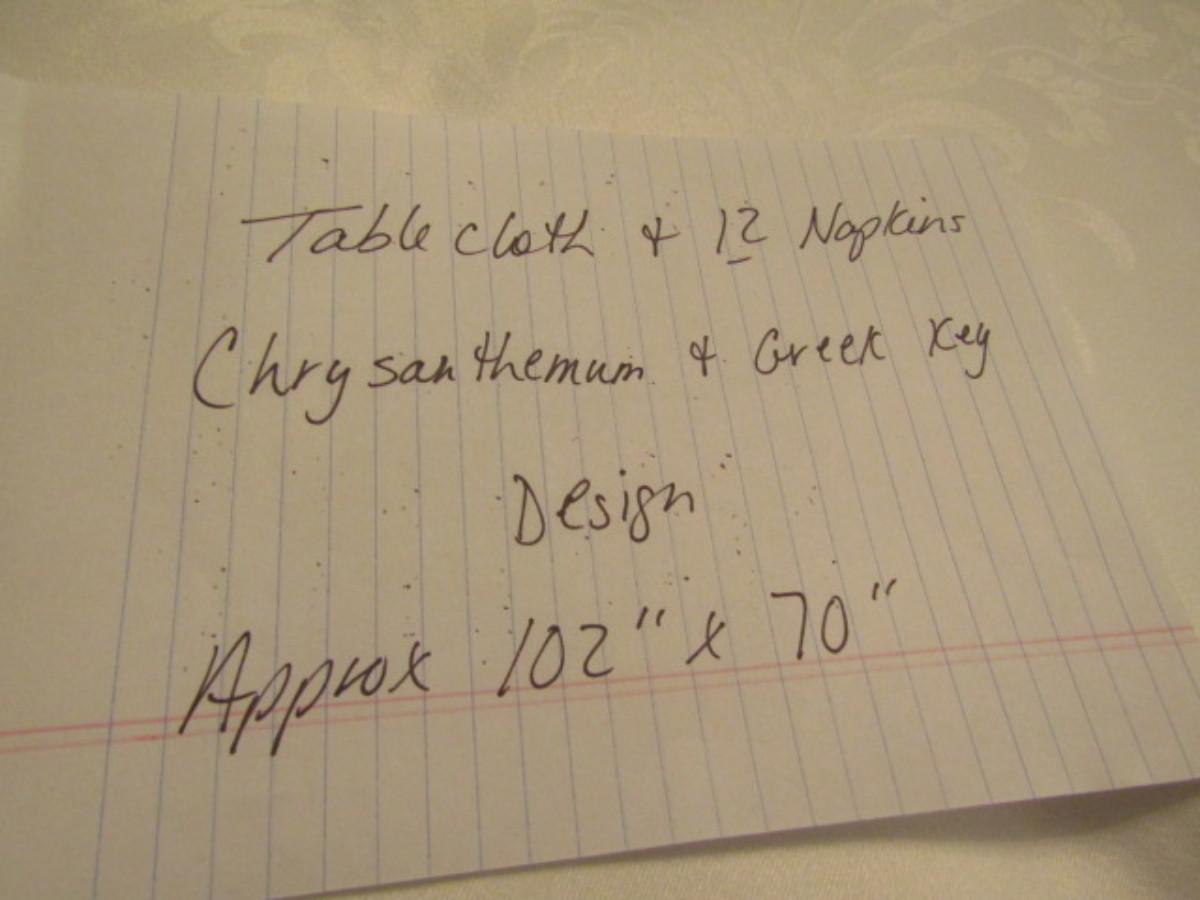 Tablecloth & 12 Napkins
Chrysanthemum & Greek Key
Design
Approx 102" x 70"